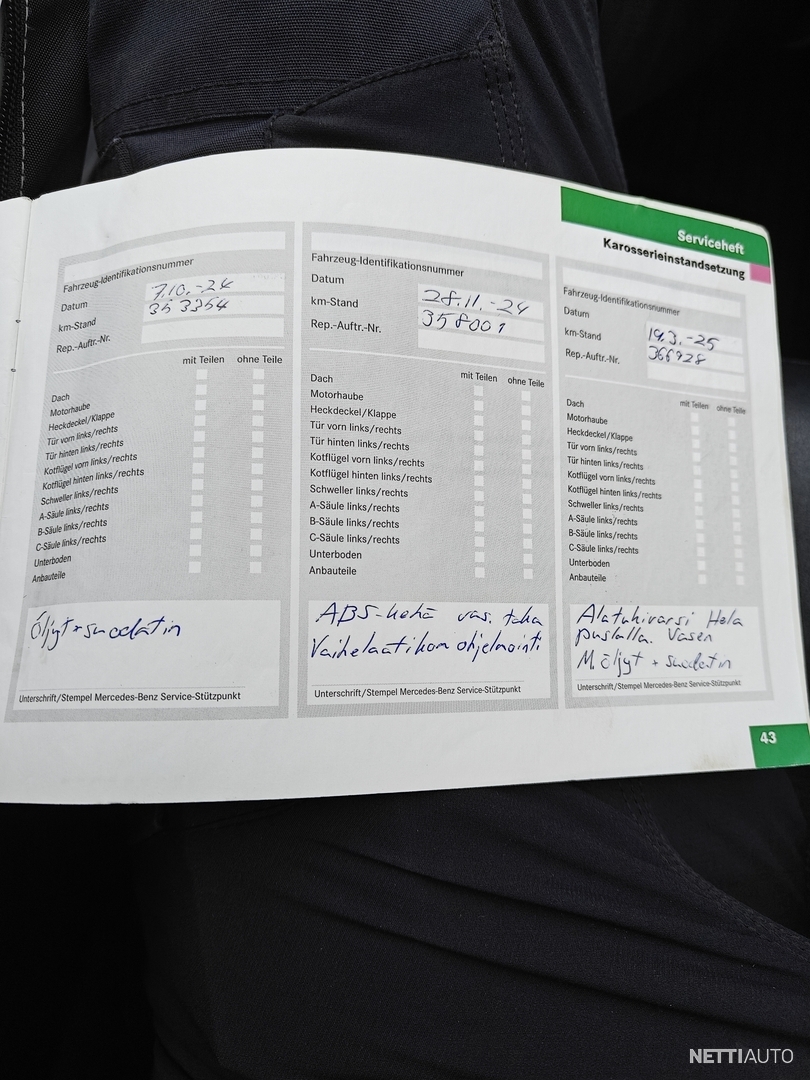 Serviceheft
Karosserieinstandsetzung
Fahrzeug-Identifikationsnummer
Datum 7.10.-24
km-Stand 353354
Rep.-Auftr.-Nr.
mit Teilen ohne Teile
Dach
Motorhaube
Heckdeckel/Klappe
Tür vorn links/rechts
Tür hinten links/rechts
Kotflügel vorn links/rechts
Kotflügel hinten links/rechts
Schweller links/rechts
A-Säule links/rechts
B-Säule links/rechts
C-Säule links/rechts
Unterboden
Anbauteile
Öljyt + suodatin
Unterschrift/Stempel Mercedes-Benz Service-Stützpunkt
Fahrzeug-Identifikationsnummer
Datum 28.11.-24
km-Stand 358001
Rep.-Auftr.-Nr.
mit Teilen ohne Teile
Dach
Motorhaube
Heckdeckel/Klappe
Tür vorn links/rechts
Tür hinten links/rechts
Kotflügel vorn links/rechts
Kotflügel hinten links/rechts
Schweller links/rechts
A-Säule links/rechts
B-Säule links/rechts
C-Säule links/rechts
Unterboden
Anbauteile
ABS-kehä vas. taka
Vaihelaatikon ohjelmointi
Unterschrift/Stempel Mercedes-Benz Service-Stützpunkt
Fahrzeug-Identifikationsnummer
Datum 19.3.-25
km-Stand 366928
Rep.-Auftr.-Nr.
mit Teilen ohne Teile
Dach
Motorhaube
Heckdeckel/Klappe
Tür vorn links/rechts
Tür hinten links/rechts
Kotflügel vorn links/rechts
Kotflügel hinten links/rechts
Schweller links/rechts
A-Säule links/rechts
B-Säule links/rechts
C-Säule links/rechts
Unterboden
Anbauteile
Alatukivarsi Hela
puslalla. Vasen
M. öljyt + suodatin
Unterschrift/Stempel Mercedes-Benz Service-Stützpunkt
43
NETTIAUTO